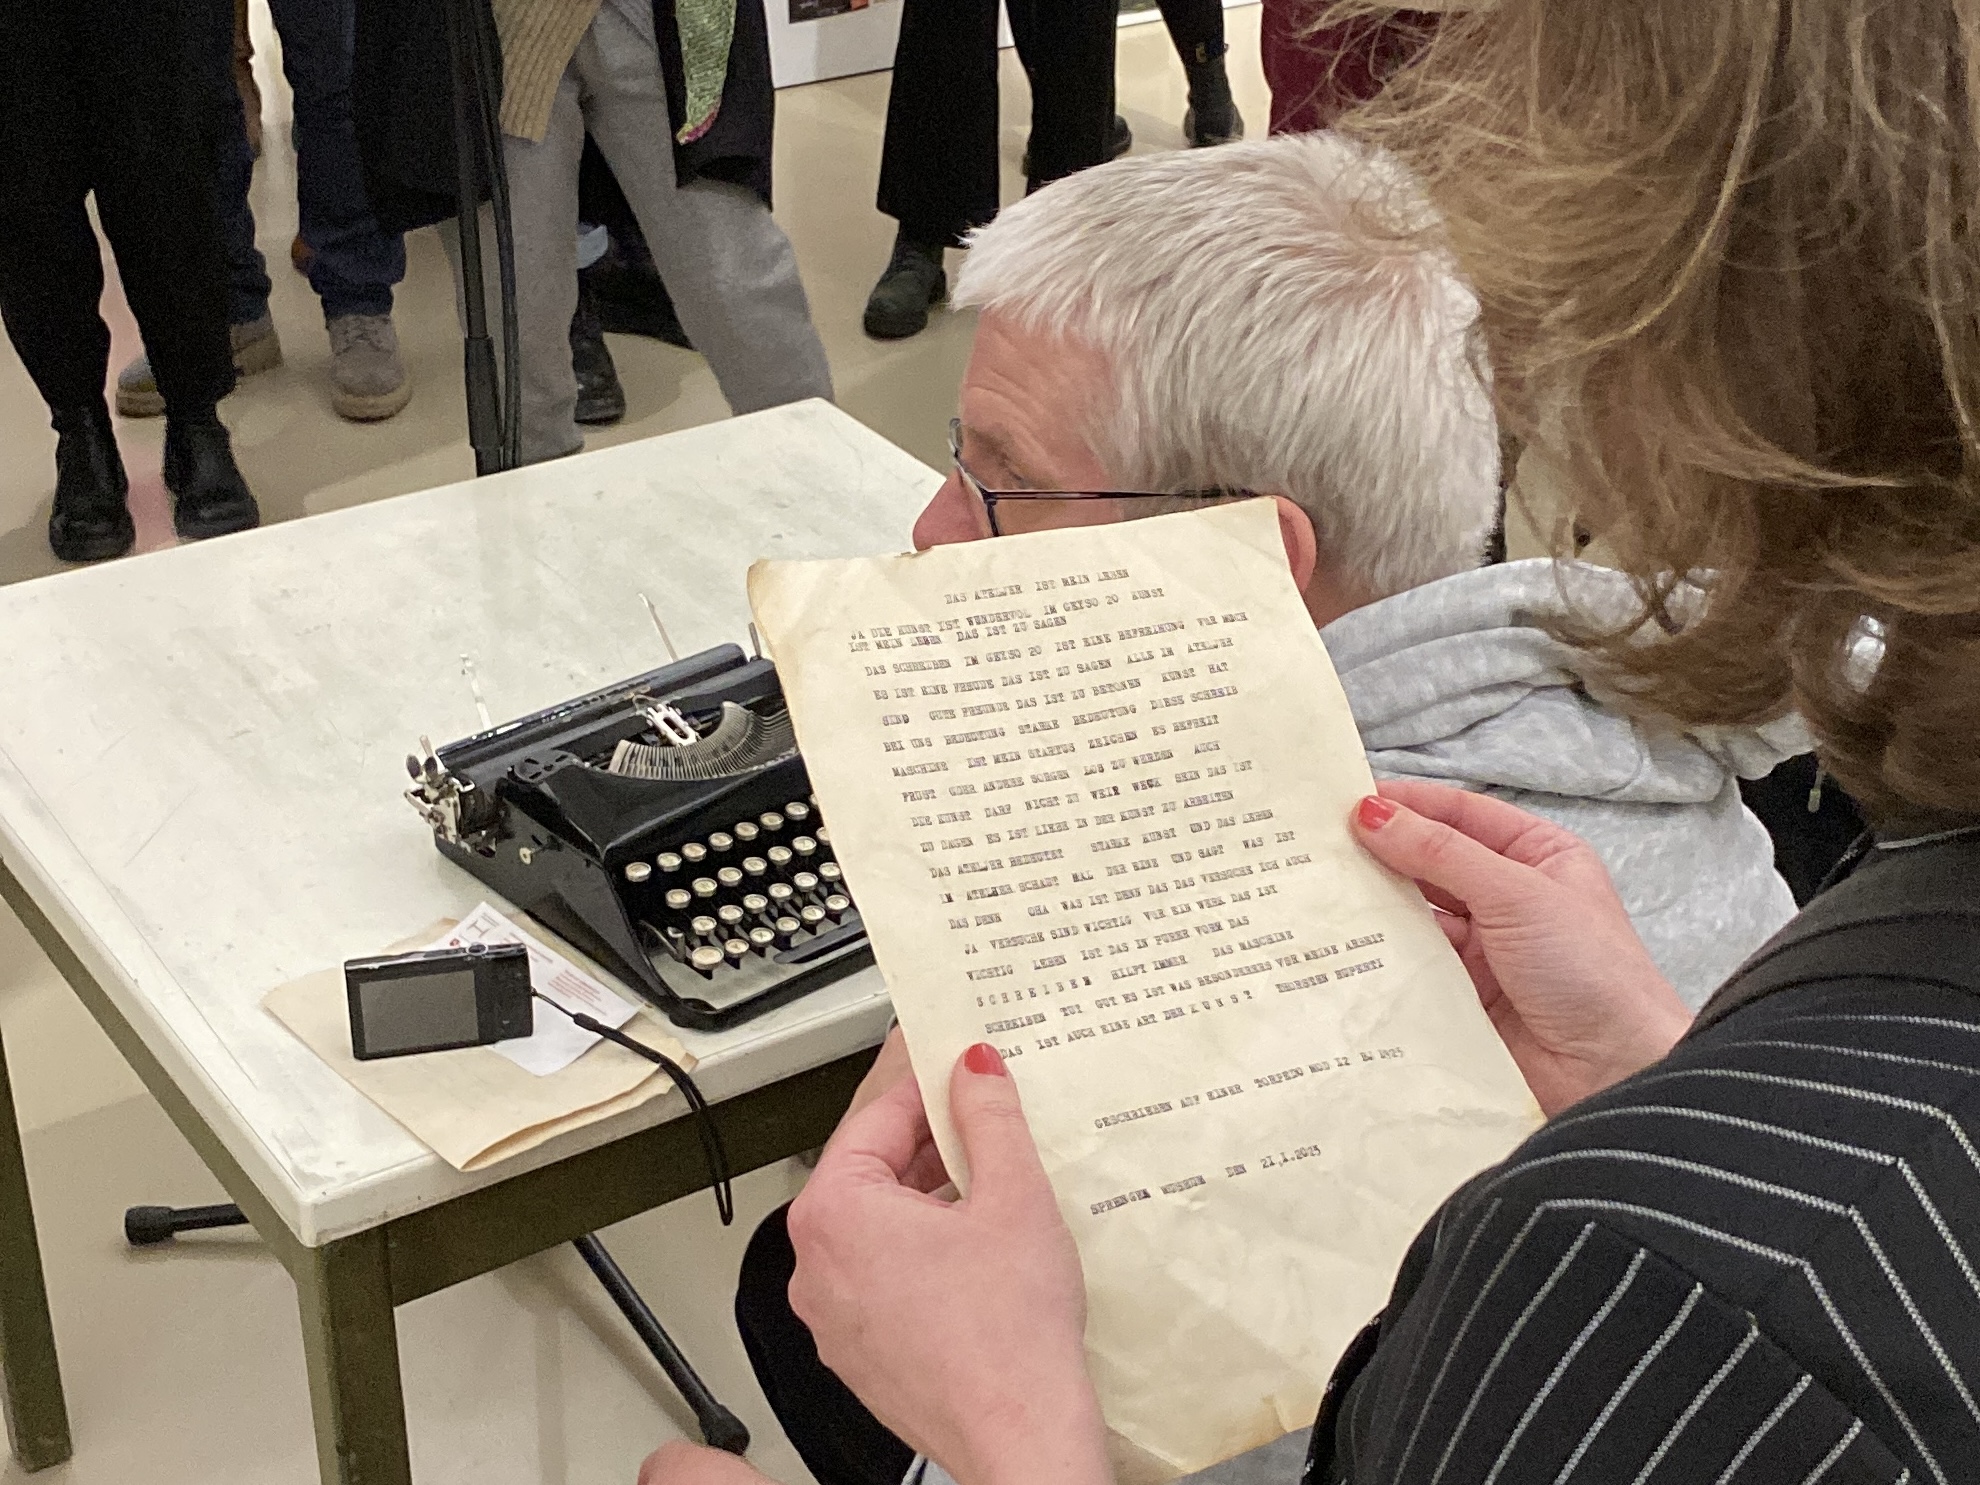 DAS ATELJER IST MEIN LEBEN
JA DIE KUNST IST WUNDERVOL IM GEYSO 20 KUNST
IST MEIN LEBEN DAS IST ZU SAGEN
DAS SCHREIBEN IM GEYSO 20 IST EINE BEFREIHUNG VOR MICH
ES IST EINE FREUDE DAS IST ZU SAGEN ALLE IM ATELJER
SIND GUTE FREUNDE DAS IST ZU BETONEN KUNST HAT
BEI UNS BEDEUTUNG STARKE BEDEUTUNG DIESE SCHREIB
MASCHINE IST MEIN STARTUS ZEICHEN ES BEFREIT
FRUST ODER ANDERE SORGEN LOS ZU WERDEN AUCH
DIE KUNST DARF NICHT ZU WEIR WECK SEIN DAS IST
ZU SAGEN ES IST LIEBE IN DER KUNST ZU ARBEITEN
DAS ATELJER BEDEUTET STARKE KUNST UND DAS LEBEN
IM ATELJER SCHAUT MAL DER EINE UND SAGT WAS IST
DAS DENN OHA WAS IST DENN DAS DAS VERSUCHE ICH AUCH
JA VERSUCHE SIND WICHTIG VOR EIN WERK DAS IST
WICHTIG LEBEN IST DAS IN PURER VORM DAS
S C H R E I B E N HILFT IMMER DAS MASCHINE
SCHREIBEN TUT GUT ES IST WAS BESONDERES VOR MEINE ARBEIT
DAS IST AUCH EINE ART DER K U N S T THORSTEN RUPERTI
GESCHRIEBEN AUF EINER TORPEDO MOD 12 BJ 1925
SPRENGEL MUSEUM DEN 21.1.2025